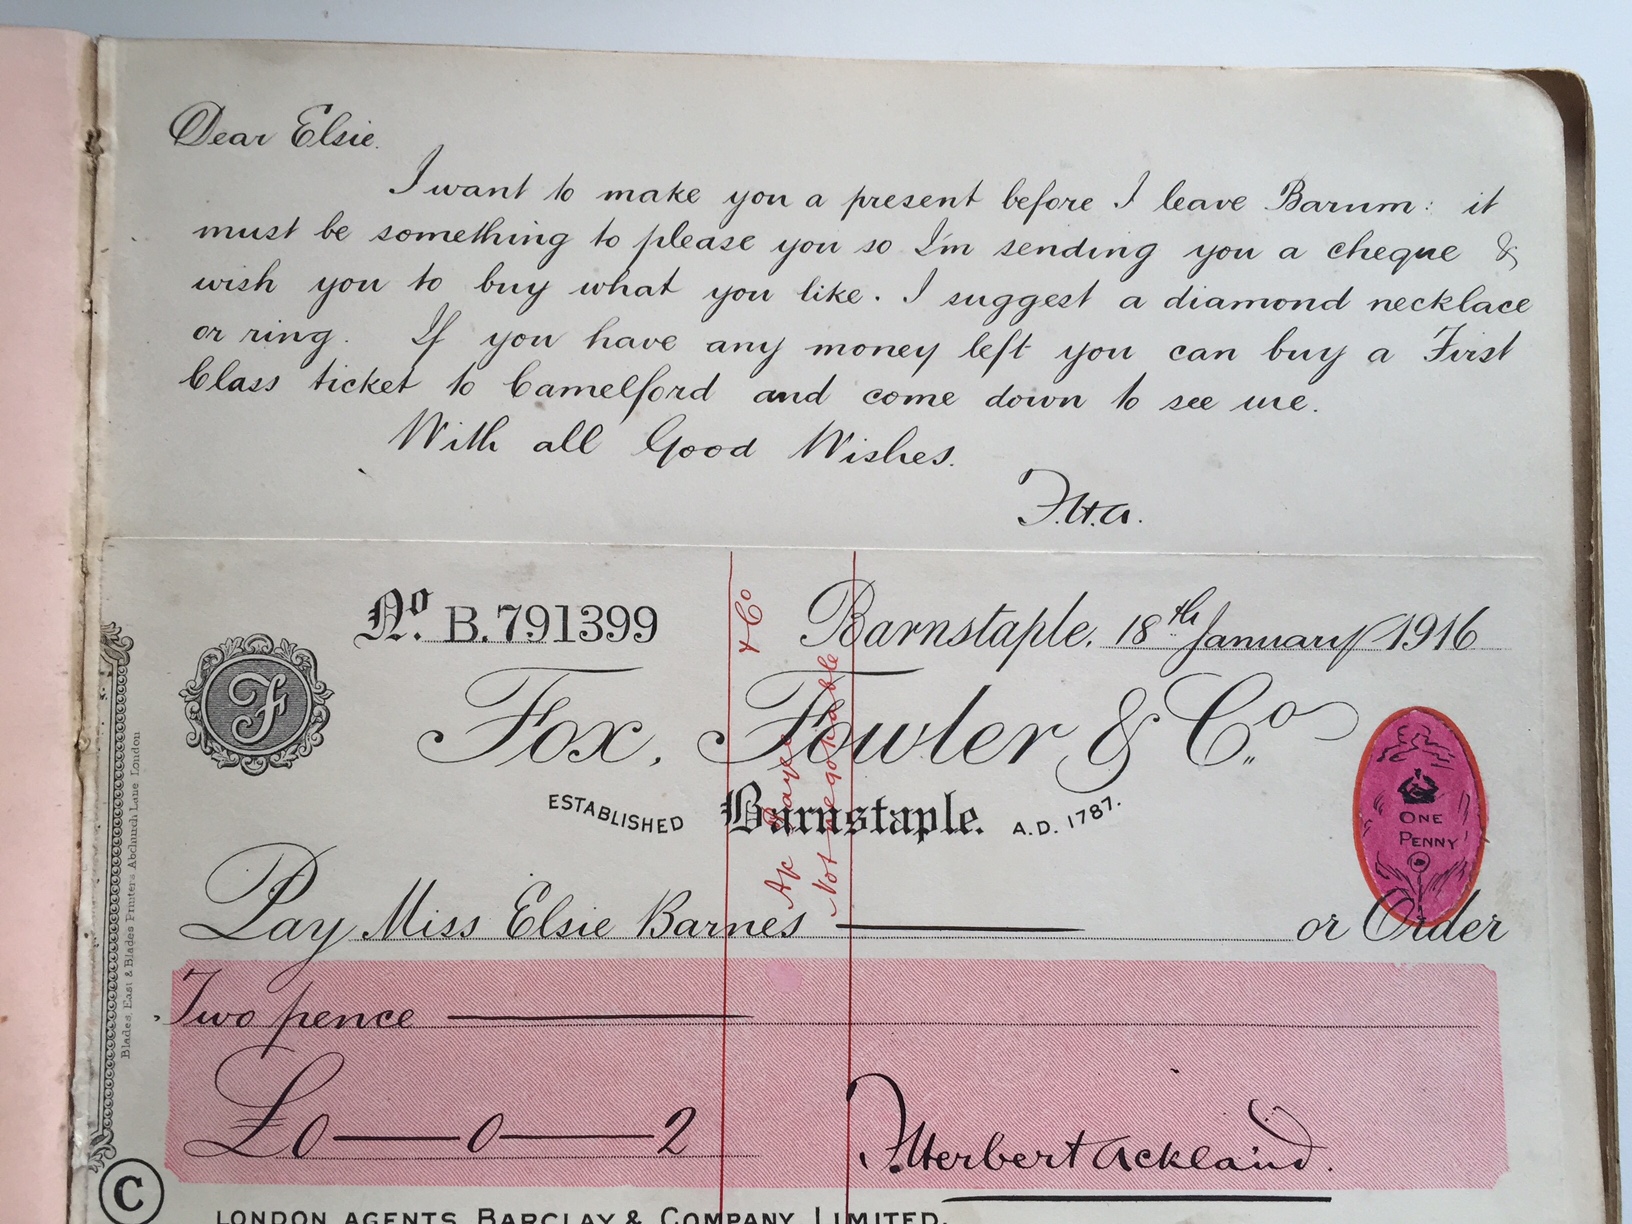 Dear Elsie.
I want to make you a present before I leave Barum: it
must be something to please you so I'm sending you a cheque &
wish you to buy what you like. I suggest a diamond necklace
or ring. If you have any money left you can buy a First
Class ticket to Camelford and come down to see me.
With all Good Wishes.
F.H.A.
No. B.791399
Barnstaple. 18th January 1916
F
Fox, Fowler & Co.
ESTABLISHED Barnstaple. A.D. 1787.
ONE
PENNY
& Co
A/c Payee
Not negotiable
Pay Miss Elsie Barnes or Order
Two pence
£0—0—2
F. Herbert Ackland.
Blades, East & Blades Printers Abchurch Lane London
C
LONDON AGENTS, BARCLAY & COMPANY LIMITED.